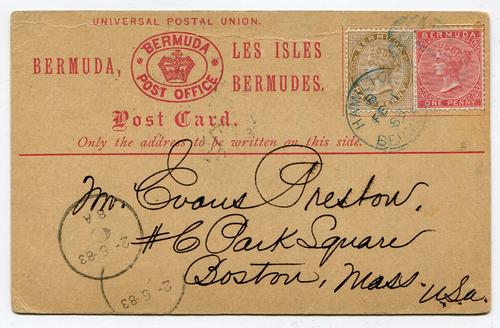 UNIVERSAL POSTAL UNION.
BERMUDA
POST OFFICE
BERMUDA,
LES ISLES
BERMUDES.
Post Card.
Only the address to be written on this side.
ONE PENNY
Mr. Evans Preston.
#6 Park Square
Boston, Mass.
U.S.a.
8 A
2-5-83
2-5-83